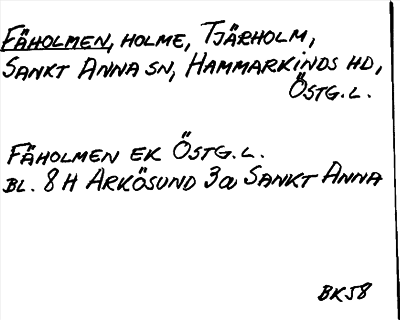 FÄHOLMEN, HOLME, TJÄRHOLM,
SANKT ANNA SN, HAMMARKINDS HD,
ÖSTG.L.
FÄHOLMEN EK ÖSTG.L.
BL. 8 H ARKÖSUND 3a SANKT ANNA
BK58